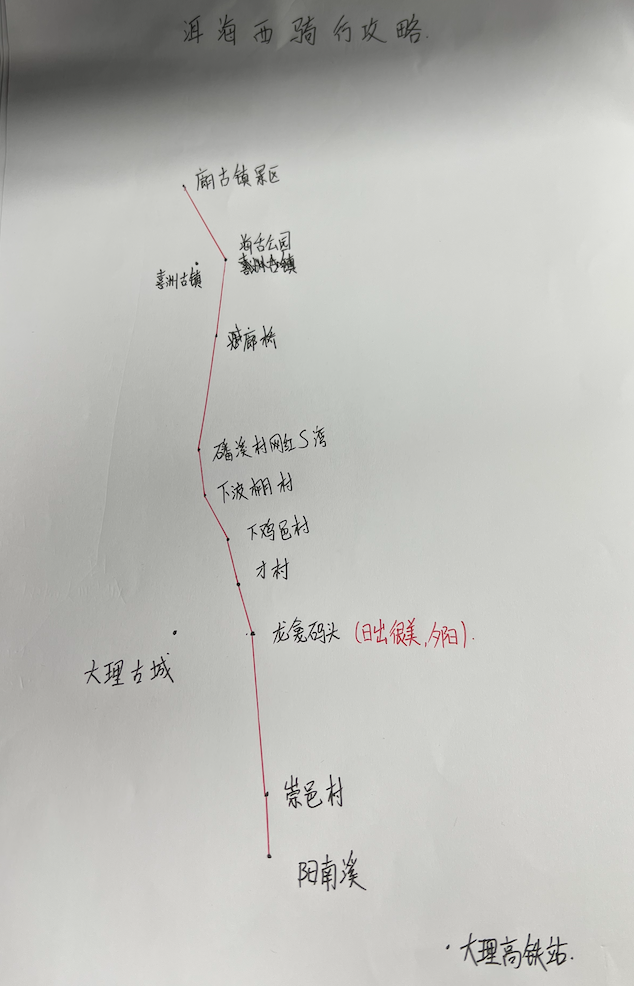 洱海西骑行攻略.
庙古镇景区
海舌公园
喜洲古镇
喜洲古镇
廊桥
磻溪村网红S湾
下波棚村
下鸡邑村
才村
龙龛码头 (日出很美,夕阳).
大理古城
崇邑村
阳南溪
大理高铁站.